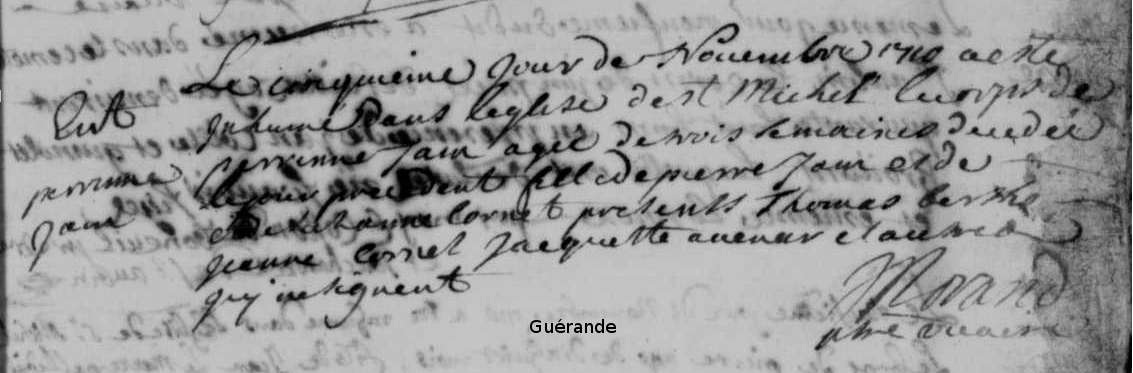 Le cinquieme jour de Novembre 1710 a este
Ent
perrinne
Jain
Inhumé dans leglise de st Michel le corps de
perrinne Jain agee de trois semaines decedée
le jour precedent fille de pierre Jain et de
Jeanne Cornet presents Thomas berthe
Jeanne Cornet Jacquette avenar et autres
qui ne signent
Morand
ptre vicaire
Guérande